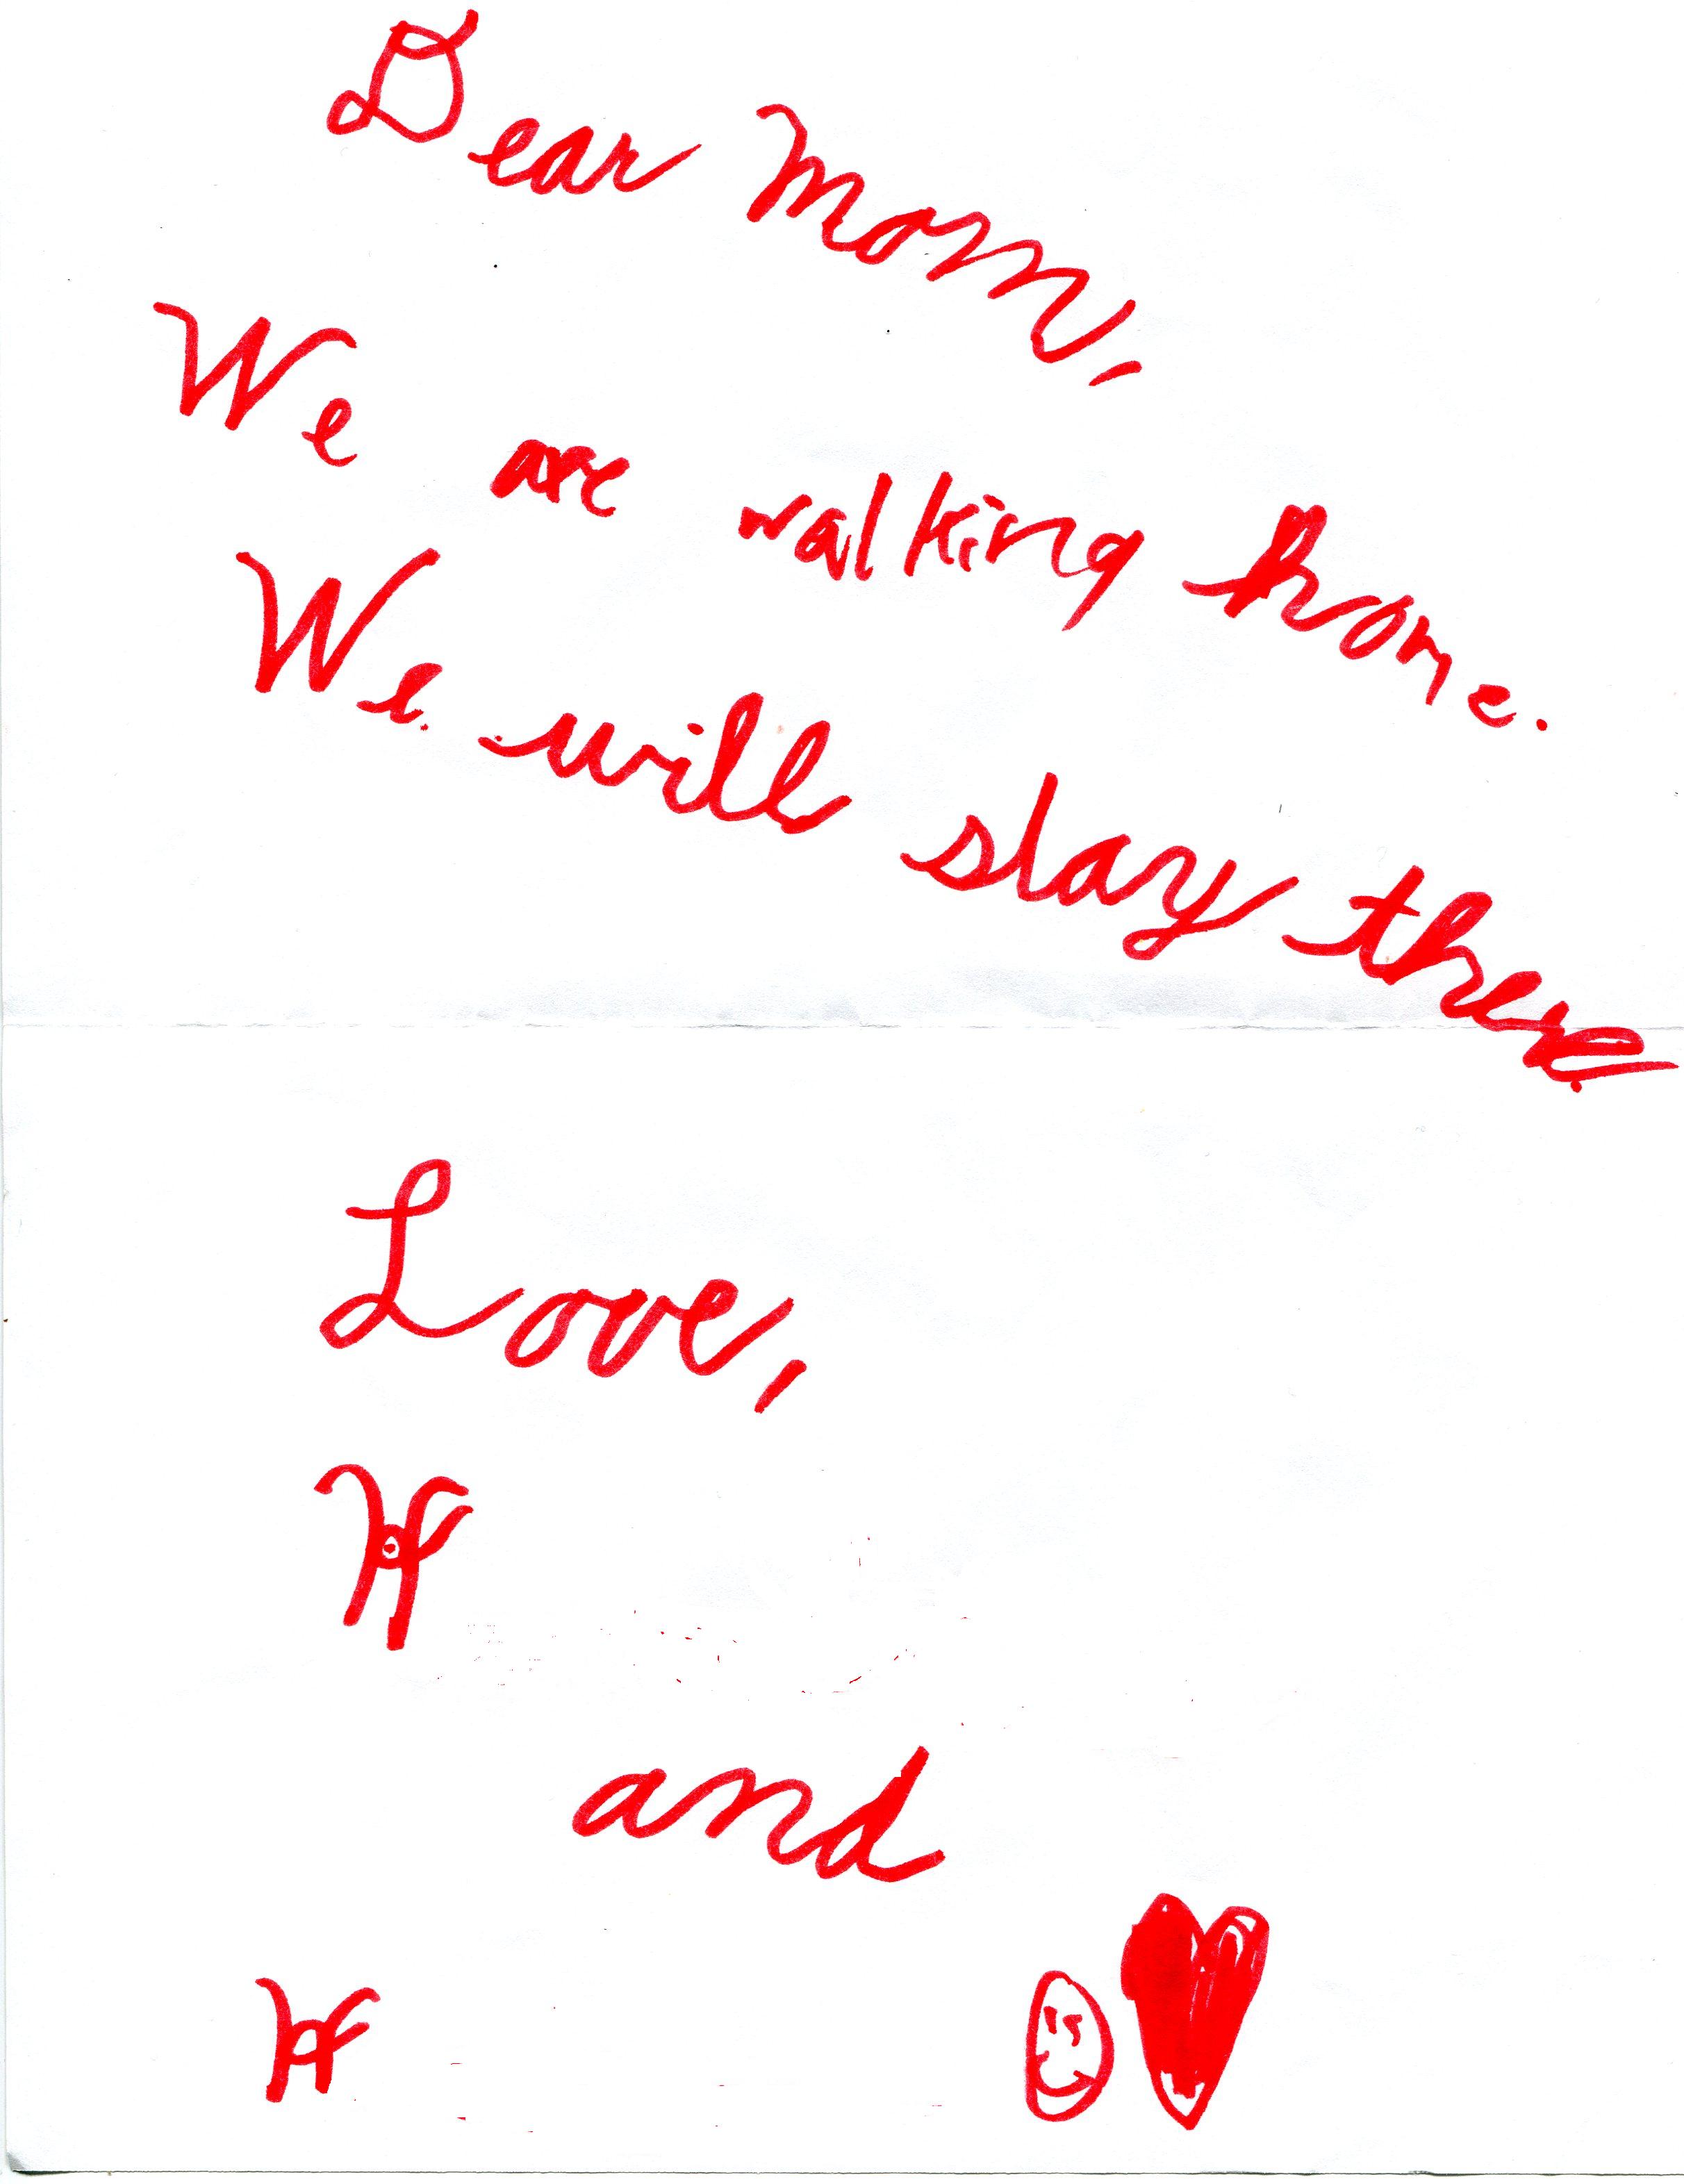 Dear Mom,
We are walking home.
We will stay there.
Love,
H
and
H